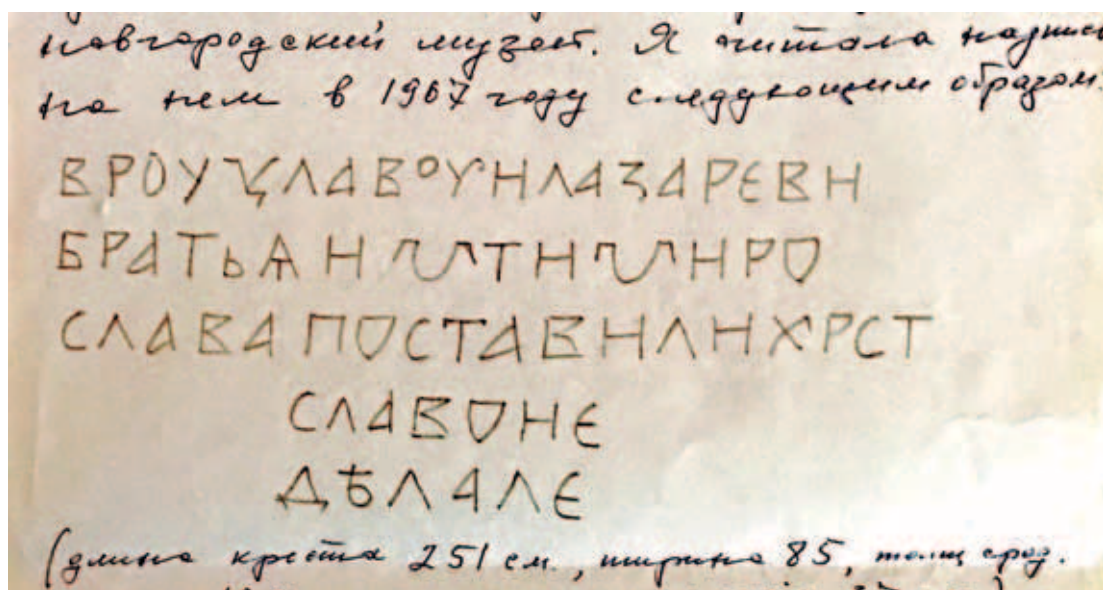 новгородский музей. Я читала надпись
на нем в 1967 году следующим образом.
ВРОУЦЛАВОУНЛАЗАРЕВН
БРАТЬѦНМТНМНРО
СЛАВАПОСТАВНЛНХРСТ
СЛАВОНЕ
ДѢЛАЛЕ
(длина креста 251 см., ширина 85, толщ сред.